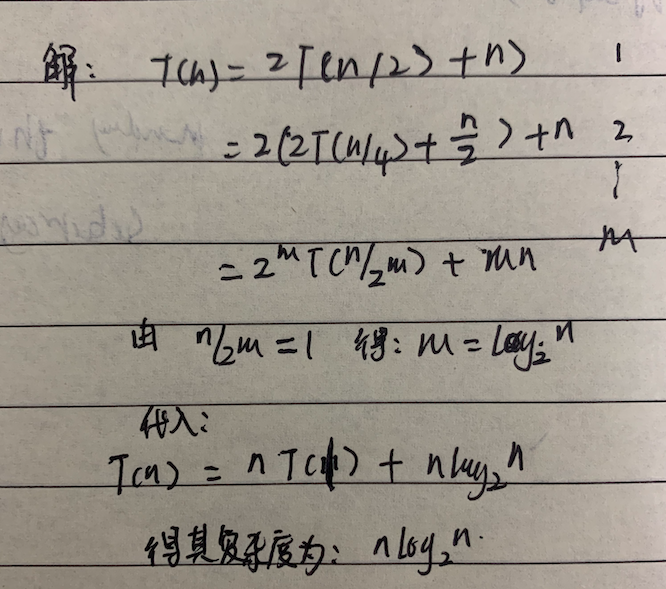 解: T(n) = 2T(n/2) + n) 1
= 2(2T(n/4) + n/2) + n 2
= 2^m T(n/2^m) + mn m
由 n/2^m = 1 得: m = log₂n
代入:
T(n) = n T(1) + nlog₂n
得其复杂度为: nlog₂n.